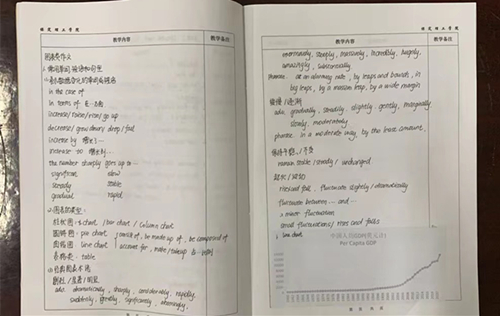 教学内容
教学备注
图表类作文
in the case of
in terms of 在…方面
increase/raise/rise/go up
decrease/grow down/drop/fall
increase by 增长了…
increase to 增长到…
the number sharply goes up to…
significant slow
steady stable
gradual rapid
2.图表的类型:
柱状图: a chart / bar chart / column chart
圆饼图: pie chart
consist of, be made up of, be composed of
曲线图: line chart
account for, make/takeup 占…比例
表格: table
adv. dramatically, sharply, considerably, rapidly,
suddenly, greatly, significantly, alarmingly,
教学内容
教学备注
enormously, steeply, massively, incredibly, hugely,
amazingly, substantially
phrase. at an alarming rate, by leaps and bounds, in
big leaps, by a massive leap, by a wide margin
缓慢/逐渐
adv. gradually, steadily, slightly, gently, marginally
slowly, moderately
phrase. in a moderate way, by the least amount,
保持平稳/不变
remain stable/steady/unchanged
起伏/波动
rise and fall, fluctuate slightly/dramatically
fluctuate between … and …
a minor fluctuation
small fluctuations/rises and falls
line chart
中国人均GDP(美元计)
Per Capita GDP